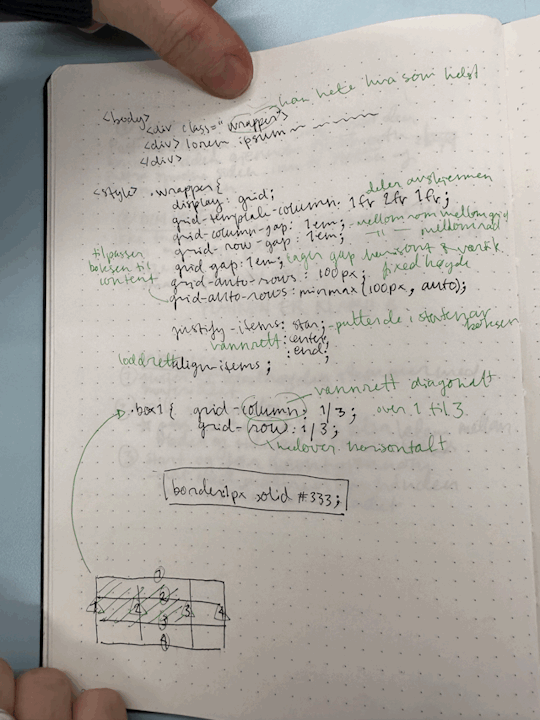 kan hete hva som helst
<body>
<div class="wrapper">
<div> lorem ipsum
</div>
<style> .wrapper {
display: grid;
deler av skjermen
grid-template-column: 1fr 2fr 1fr;
grid-column-gap: 1em; - mellomrom mellom grid
grid-row-gap: 1em; -"- mellom rad
grid gap: 1em; lager gap horisont & vertik.
tilpasser boksen til content
grid-auto-rows: 100px; fixed høyde
grid-auto-rows: minmax(100px, auto);
justify-items: star; - putter de i starten av boksen
vannrett :center;
:end;
loddrett align-items;
vannrett diagonalt
.box1 { grid-column: 1/3; over 1 til 3.
grid-row: 1/3;
nedover horisontalt
border:1px solid #333;
1
2
1 2 3 4
3
4